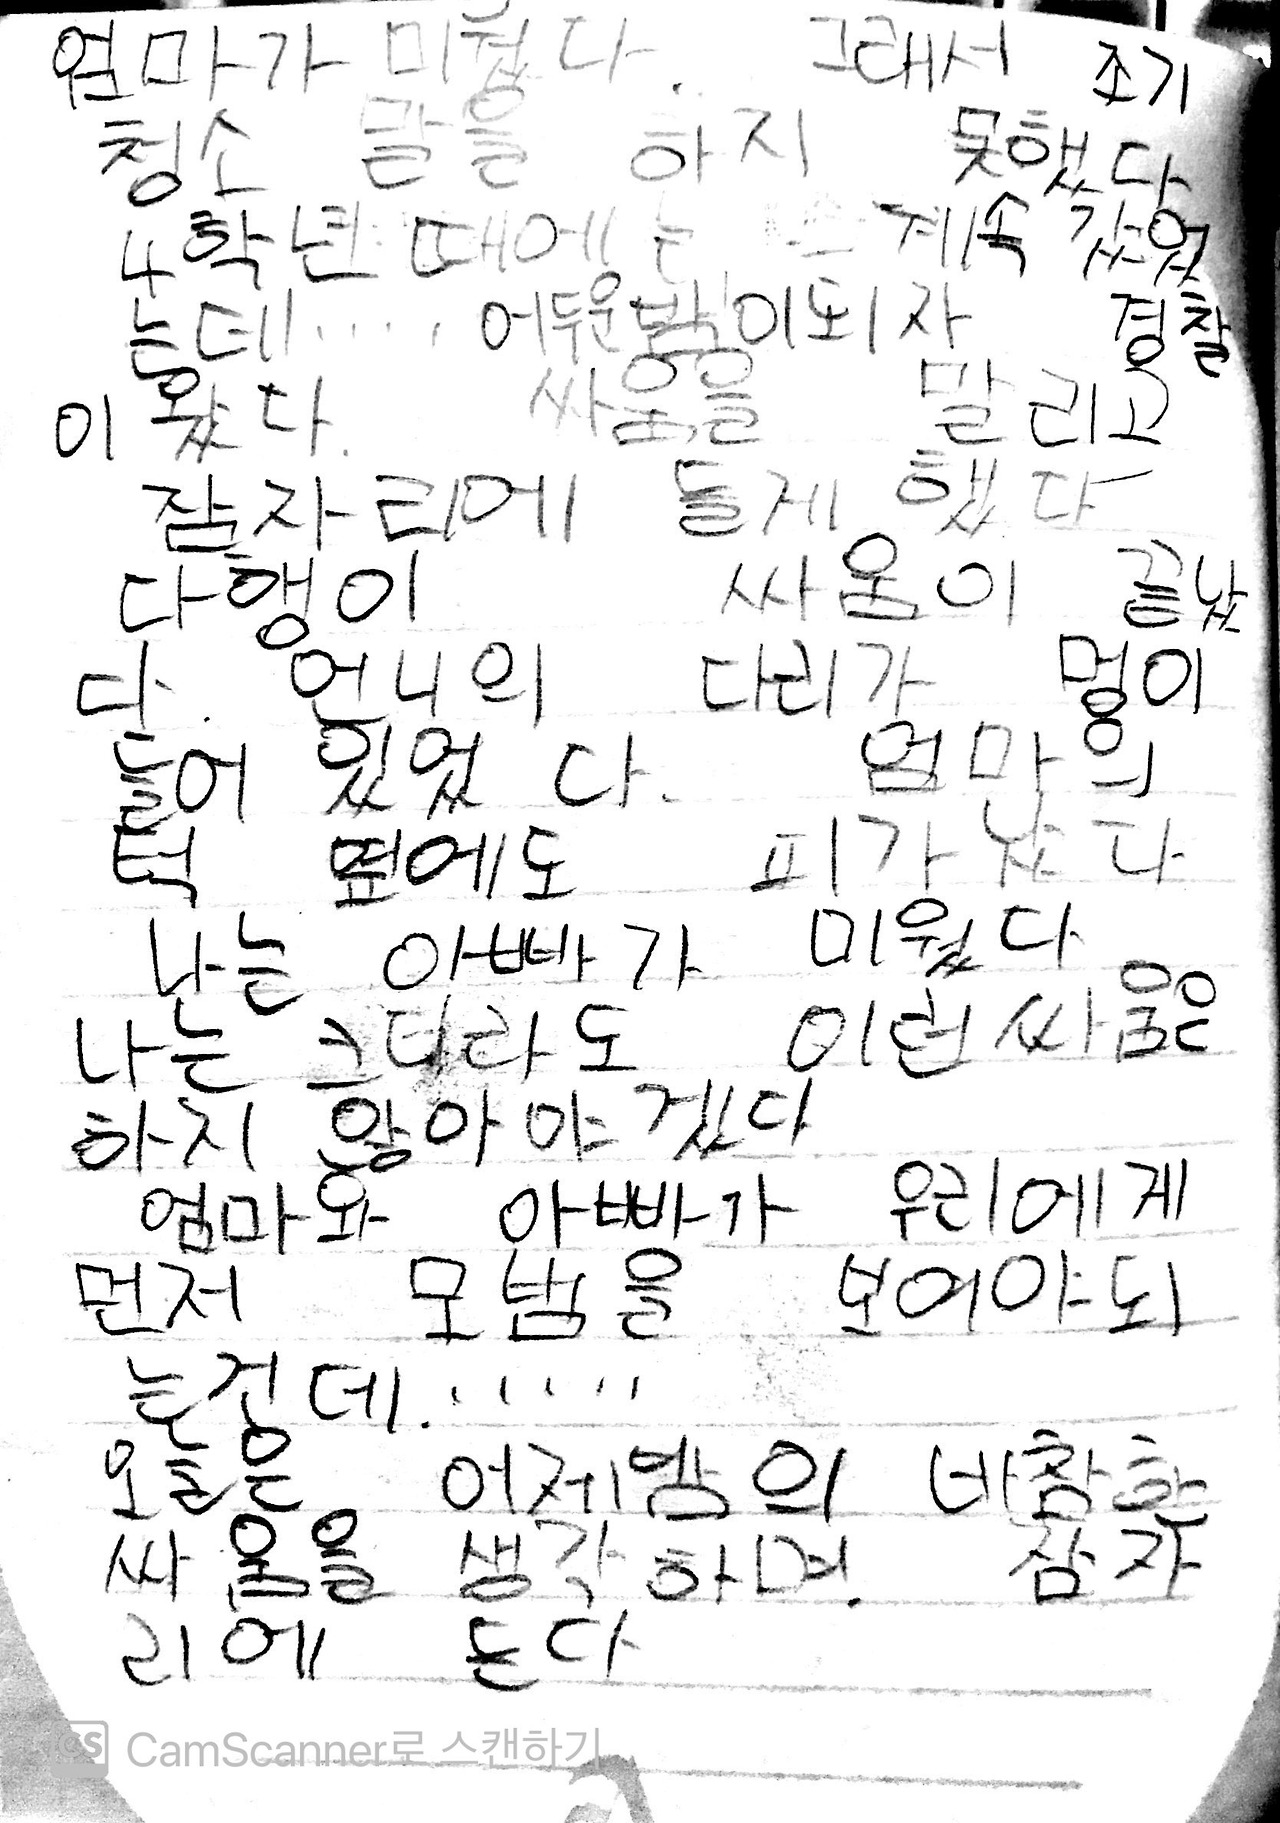 엄마가 미웠다. 그래서 조기
청소 말을 하지 못했다
4학년 때에는 계속 갔었
는데····· 어두운밤이되자 경찰
이 왔다. 싸움을 말리고
잠자리에 들게 했다
다행이 싸움이 끝났
다. 언니의 다리가 멍이
들어 있었다. 엄마의
턱 옆에도 피가 났다
나는 아빠가 미웠다
나는 크더라도 이런싸움은
하지 않아야겠다
엄마와 아빠가 우리에게
먼저 모범을 보여야되
는건데.·····
오늘은 어제밤의 비참한
싸움을 생각하며. 잠자
리에 든다
CS CamScanner로 스캔하기